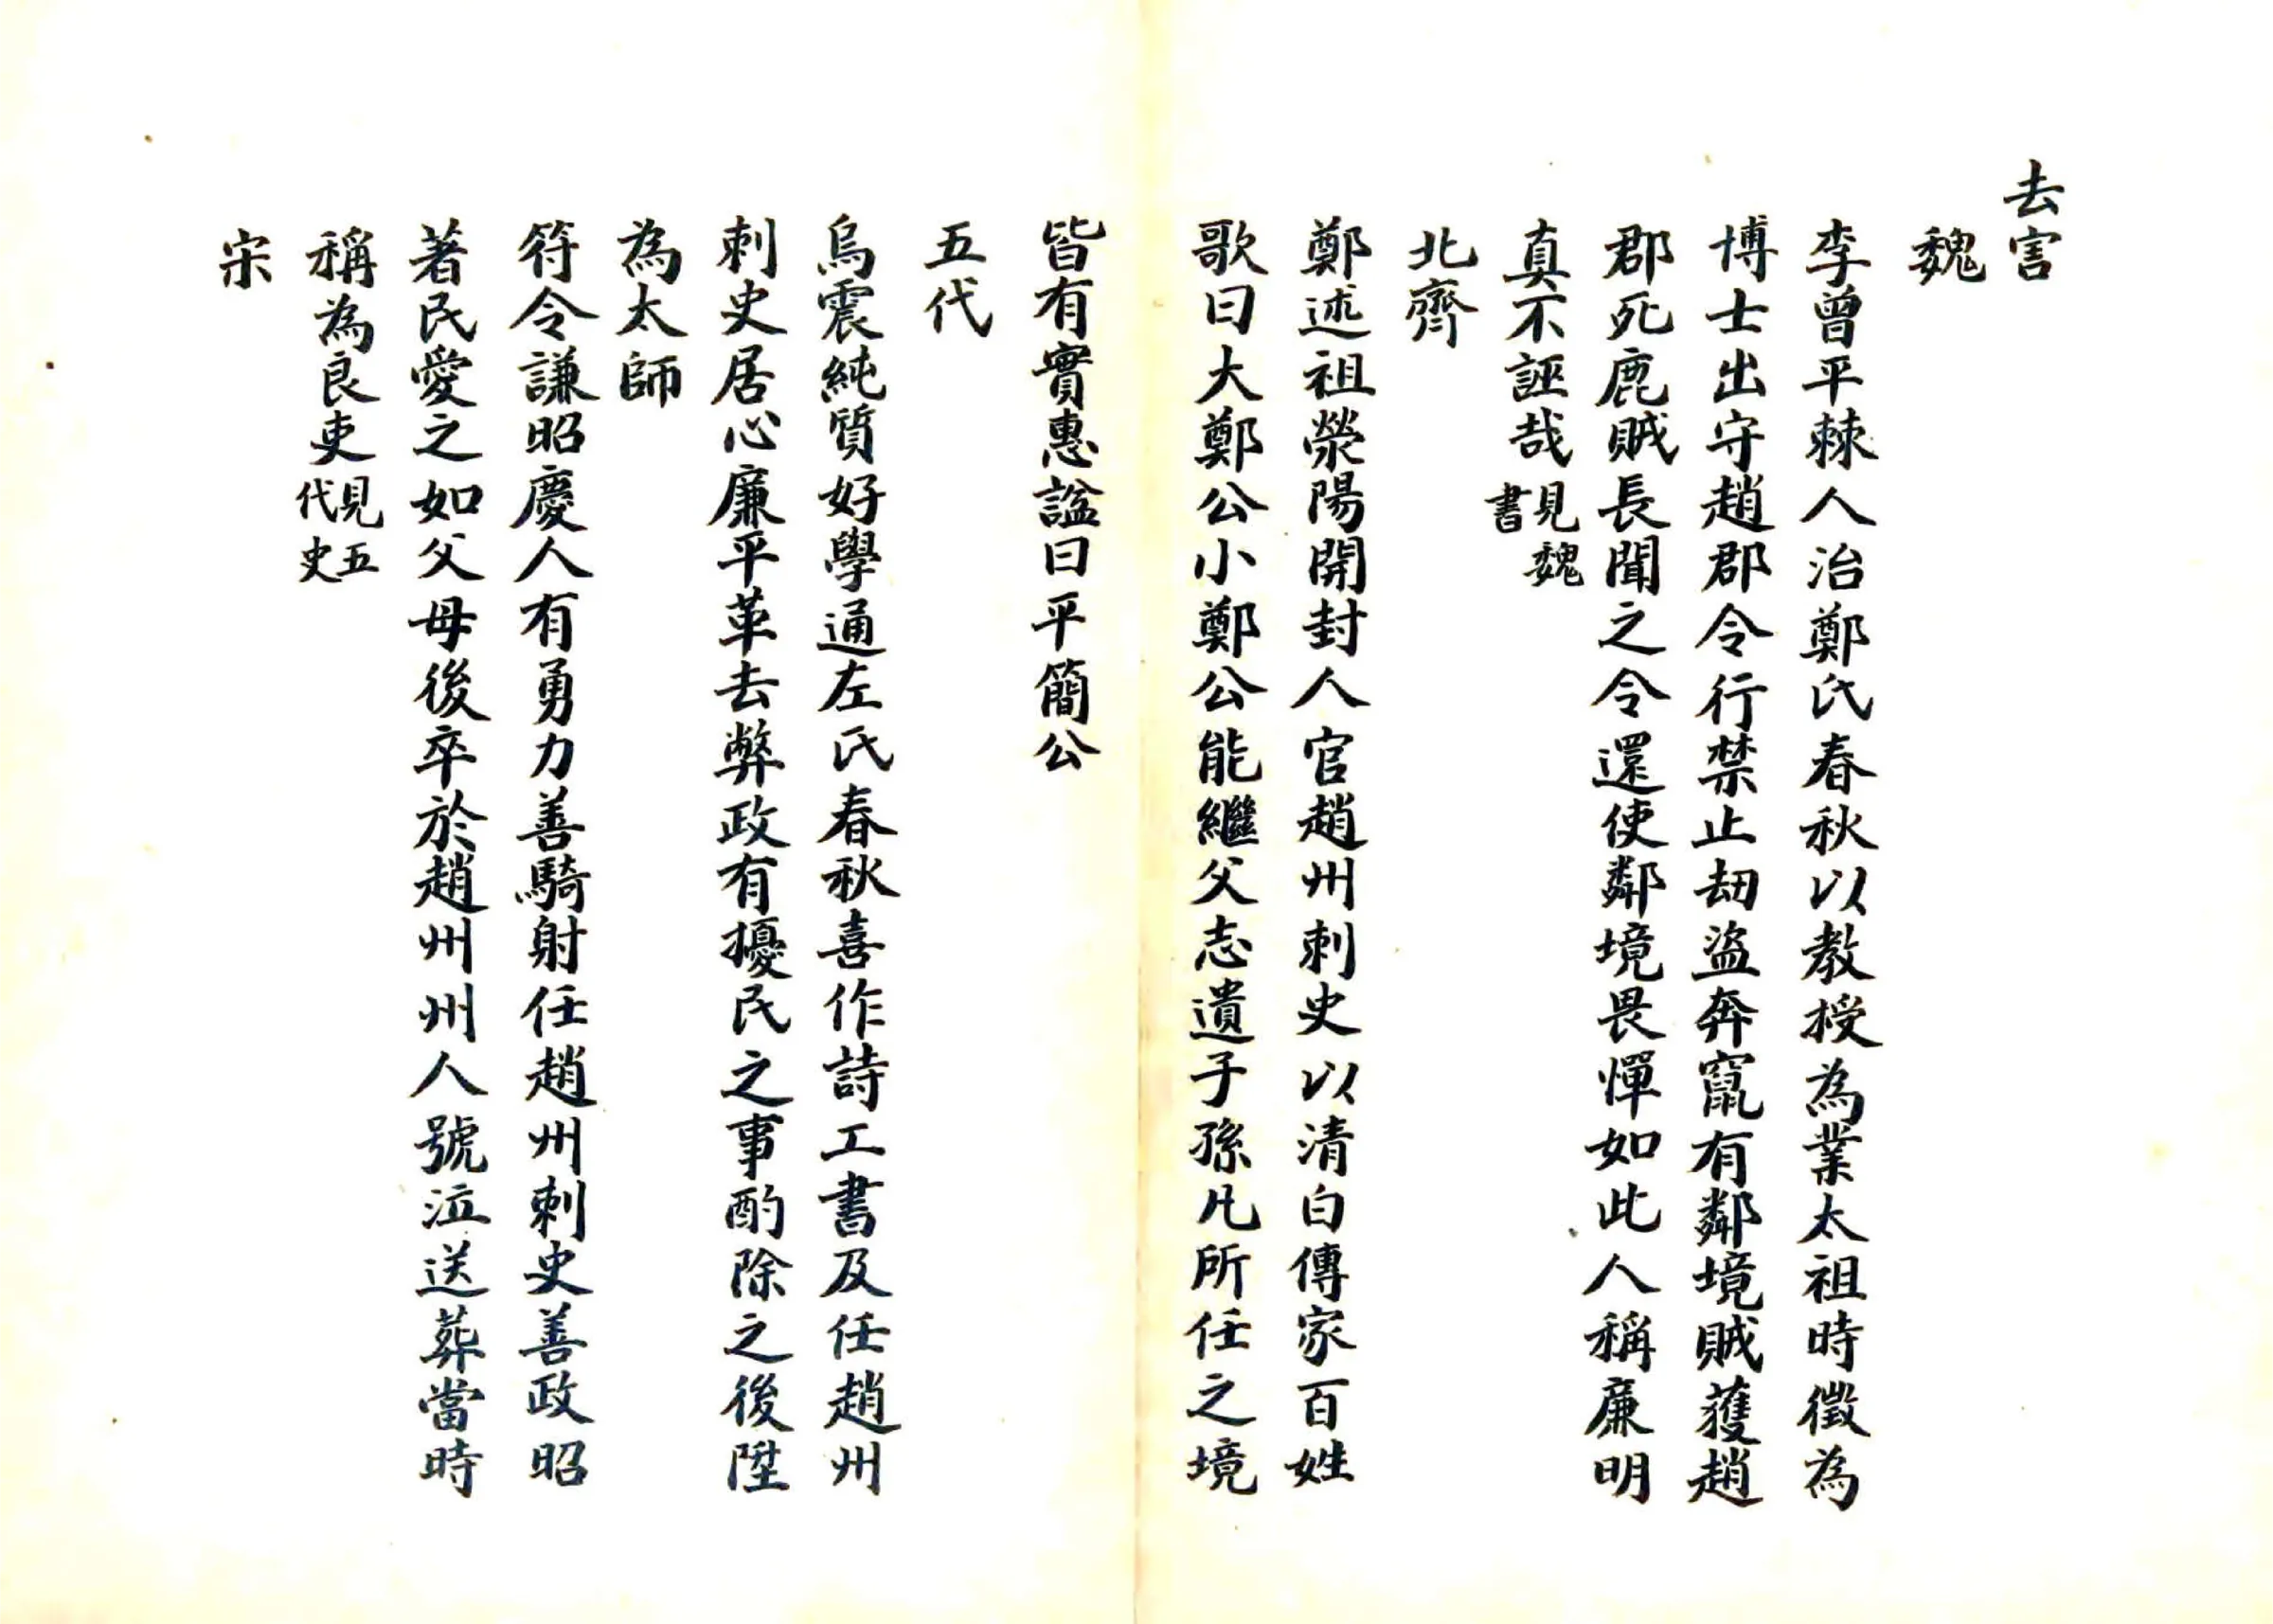 去害
魏
李曾平棘人治鄭氏春秋以教授為業太祖時徵為
博士出守趙郡令行禁止劫盜奔竄有鄰境賊獲趙
郡死鹿賊長聞之令還使鄰境畏憚如此人稱廉明
真不誣哉見魏書
北齊
鄭述祖滎陽開封人官趙州刺史以清白傳家百姓
歌曰大鄭公小鄭公能繼父志遺子孫凡所任之境
皆有實惠謚曰平簡公
五代
烏震純質好學通左氏春秋喜作詩工書及任趙州
刺史居心廉平革去弊政有擾民之事酌除之後陞
為太師
符令謙昭慶人有勇力善騎射任趙州刺史善政昭
著民愛之如父母後卒於趙州州人號泣送葬當時
稱為良吏見五代史
宋